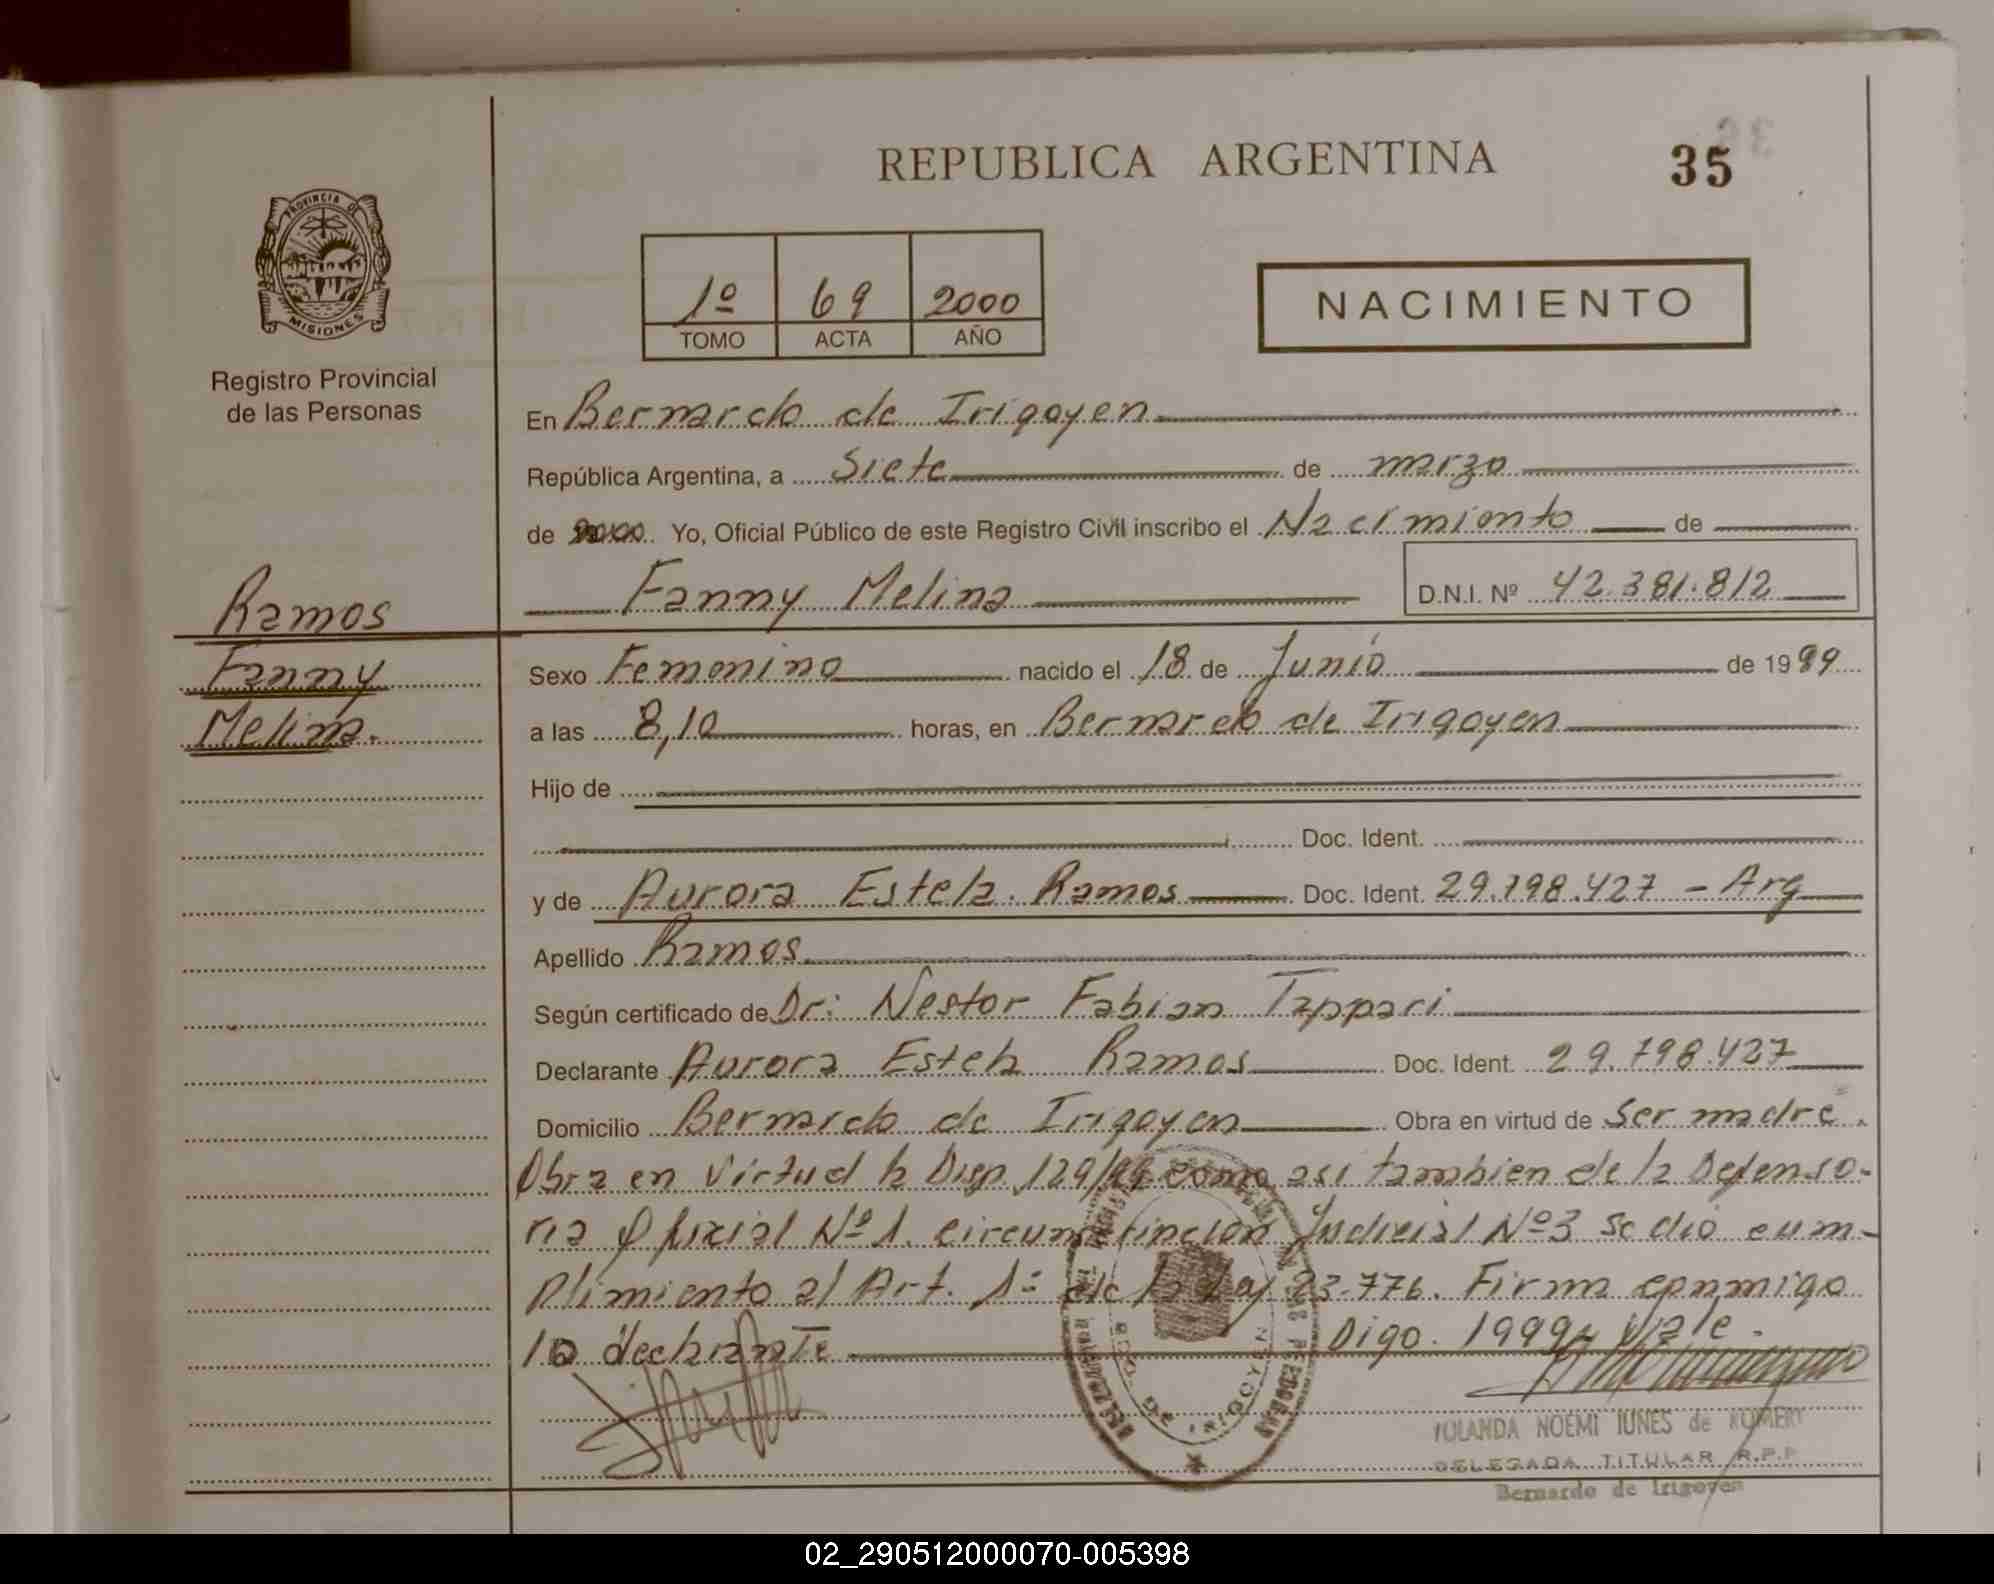 REPUBLICA ARGENTINA
35
PROVINCIA DE
MISIONES
Registro Provincial
de las Personas
1º 69 2000
TOMO ACTA AÑO
NACIMIENTO
En Bernardo de Irigoyen
República Argentina, a Siete de marzo
de 2000 Yo, Oficial Público de este Registro Civil inscribo el Nacimiento de
Fanny Melina D.N.I. Nº 42.381.812
Ramos
Fanny
Melina.
Sexo Femenino nacido el 18 de Junio de 1999
a las 8,10 horas, en Bernardo de Irigoyen
Hijo de
Doc. Ident.
y de Aurora Estela Ramos Doc. Ident. 29.798.427 - Arg
Apellido Ramos
Según certificado de Dr: Nestor Fabian Tappari
Declarante Aurora Estela Ramos Doc. Ident. 29.798.427
Domicilio Bernardo de Irigoyen Obra en virtud de Ser madre.
Obra en virtud la Disp. 129/99 como asi tambien de la Defenso-
ria Oficial Nº 1. circunscripcion Judicial Nº 3 se dio cum-
plimiento al Art. 1º de la Ley 23.776. Firma conmigo
la declarante Digo. 1999, Vale.
YOLANDA NOEMI IUNES de ROMERO
DELEGADA TITULAR R.P.P
Bernardo de Irigoyen
02_290512000070-005398